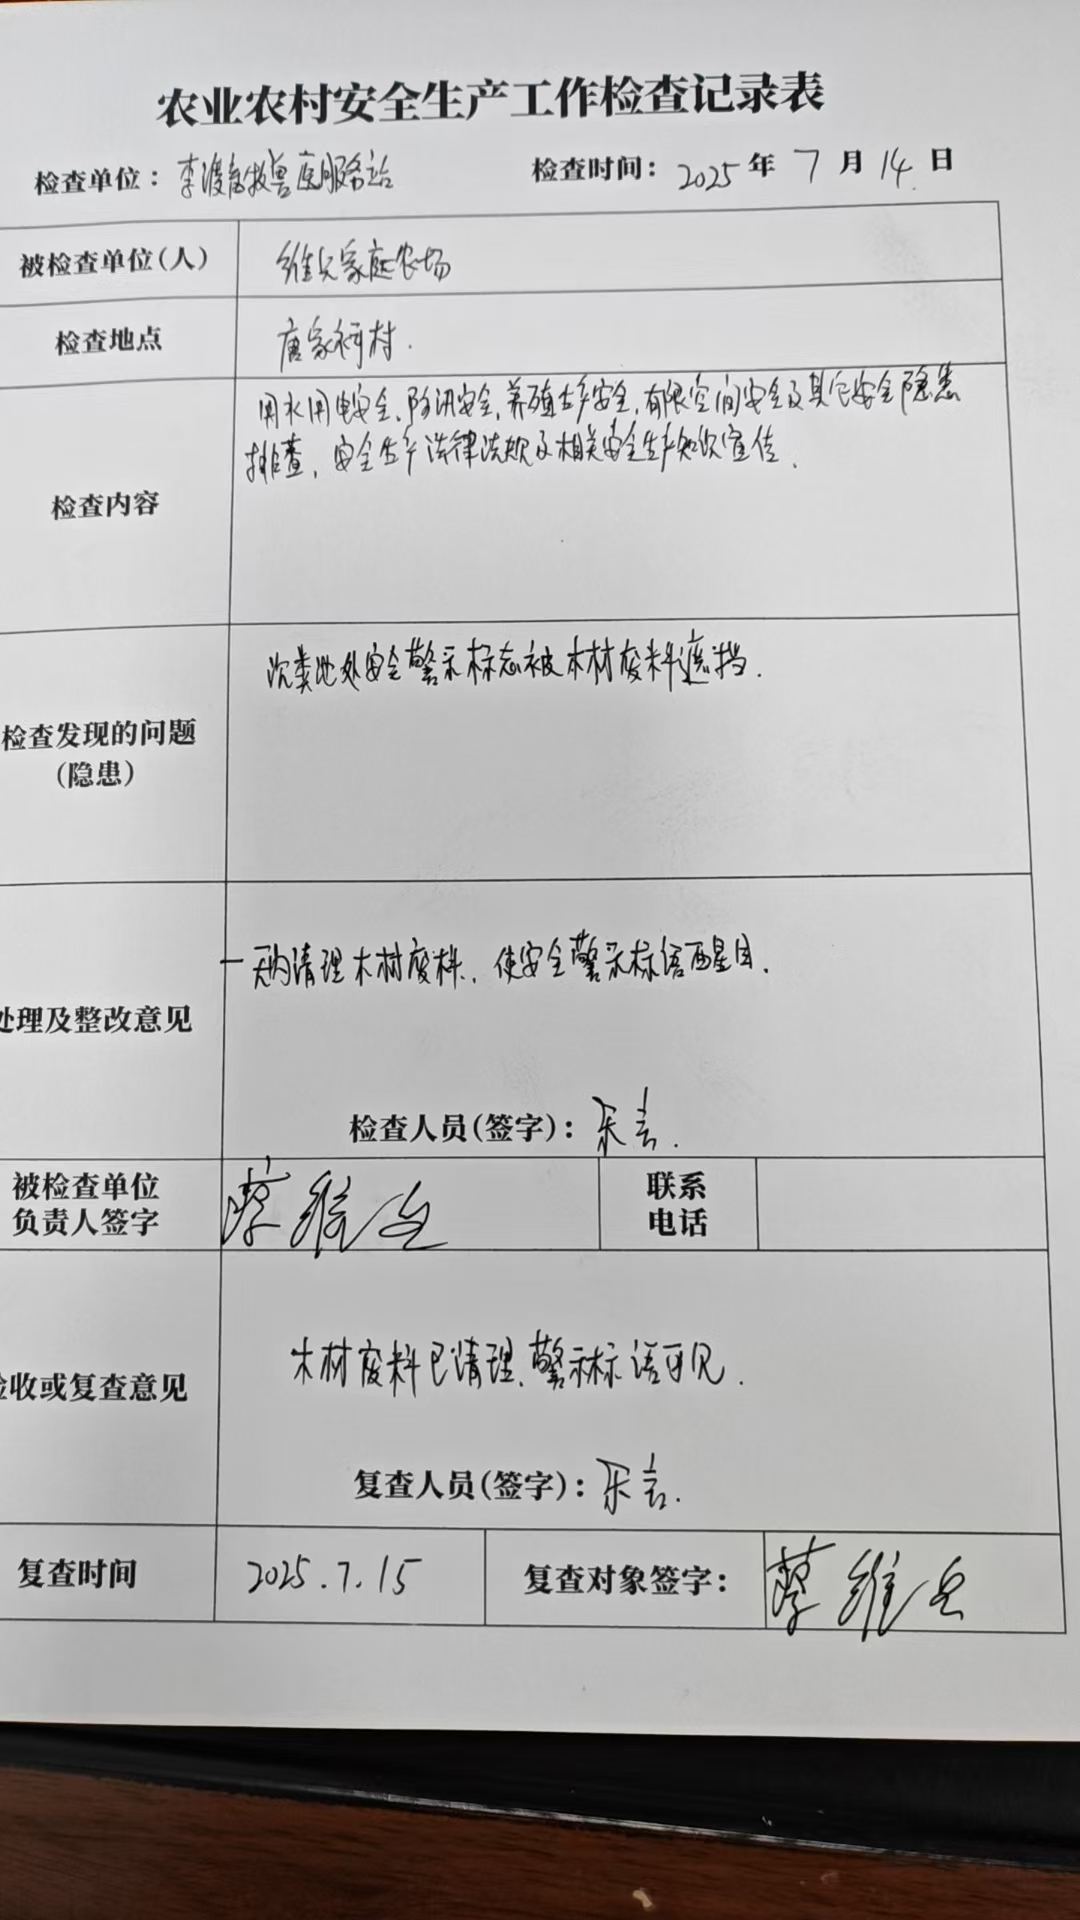 农业农村安全生产工作检查记录表
检查单位：李渡畜牧兽医服务站 检查时间：2025年7月14日
被检查单位(人) 维兵家庭农场
检查地点 唐家河村.
检查内容 用水用电安全、防汛安全，养殖生产安全，有限空间安全及其它安全隐患
排查，安全生产法律法规及相关安全生产知识宣传.
检查发现的问题
(隐患) 沉粪池处安全警示标志被木材废料遮挡.
处理及整改意见 一天内清理木材废料，使安全警示标语醒目.
检查人员(签字)：乐言.
被检查单位
负责人签字 蔡维兵 联系
电话
验收或复查意见 木材废料已清理，警示标语可见.
复查人员(签字)：乐言.
复查时间 2025.7.15 复查对象签字：蔡维兵